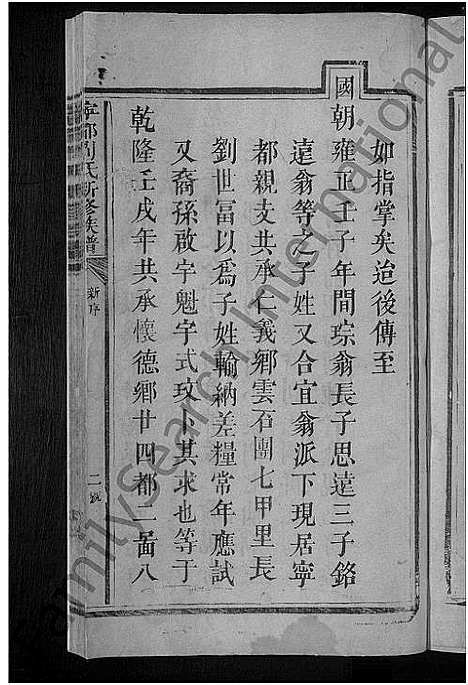 如指掌矣迨後傳至
國朝雍正壬子年間琮翁長子思遠三子銘
遠翁等之子姓又合宜翁派下現居寧
都親支共承仁義鄉雲石團七甲里長
劉世冨以爲子姓輸納差糧常年應試
又裔孫啟宇魁宇式玟卜其求也等于
乾隆壬戌年共承懷德鄉廿四都二啚八
寧都劉氏新修族譜
新序
二
FamilySearch International